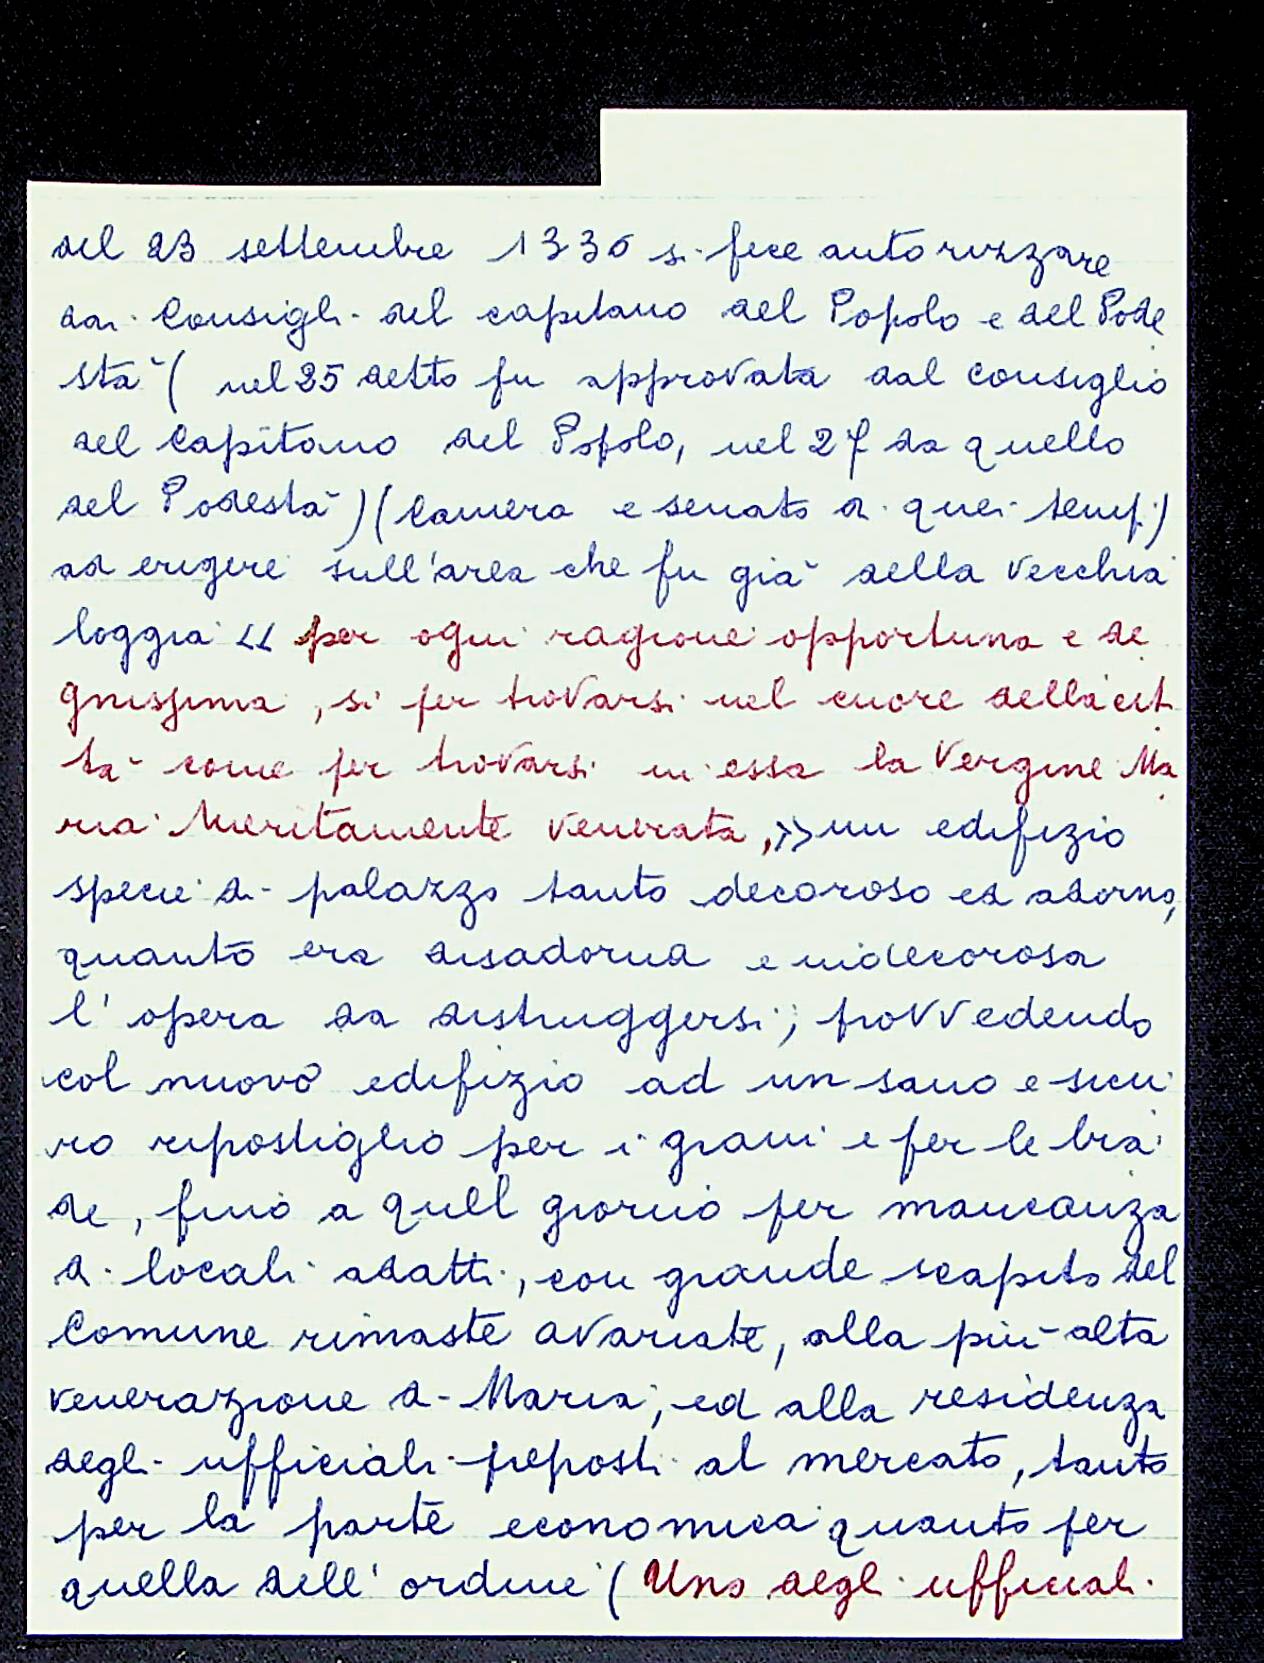 del 23 settembre 1336 si fece autorizzare
dai Consigli del capitano del Popolo e del Pode
stà ( nel 25 detto fu approvata dal consiglio
del Capitano del Popolo, nel 27 da quello
del Podestà ) ( Camera e senato di quei tempi )
ad erigere sull'area che fu già della vecchia
loggia << per ogni ragione opportuna e de
gnissima, si per trovarsi nel cuore della cit
tà come per trovarsi in essa la Vergine Ma
ria Meritamente venerata, >> un edifizio
specie di palazzo tanto decoroso ed adorno,
quanto era disadorna e indecorosa
l'opera da distruggersi; provvedendo
col nuovo edifizio ad un sano e sicu
ro ripostiglio per i grani e per le bia
de, fino a quell giorno per mancanza
di locali adatti, con grande scapito del
Comune rimaste avariate, alla più alta
venerazione di Maria, ed alla residenza
degli ufficiali preposti al mercato, tanto
per la parte economica quanto per
quella dell'ordine ( Uno degli ufficiali